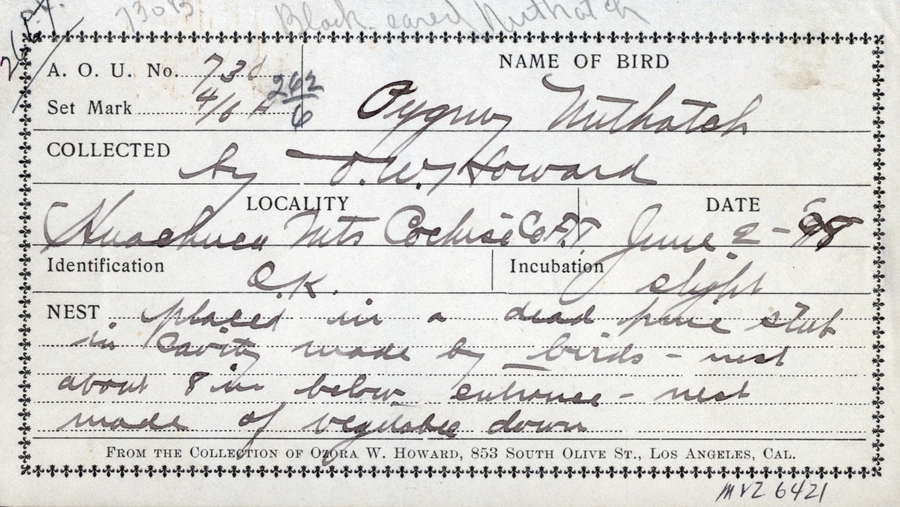 Black-eared Nuthatch
A. O. U. No. 730
NAME OF BIRD
Set Mark 4/6 262/6
Pygmy Nuthatch
COLLECTED by O.W. Howard
LOCALITY
DATE
Huachuca Mts Cochise Co A.T. June 2-98
Identification O.K. Incubation slight
NEST placed in a dead pine stub
in cavity made by birds - nest
about 8 in below entrance - nest
made of vegetable down
FROM THE COLLECTION OF OZORA W. HOWARD, 853 SOUTH OLIVE ST., LOS ANGELES, CAL.
MVZ 6421